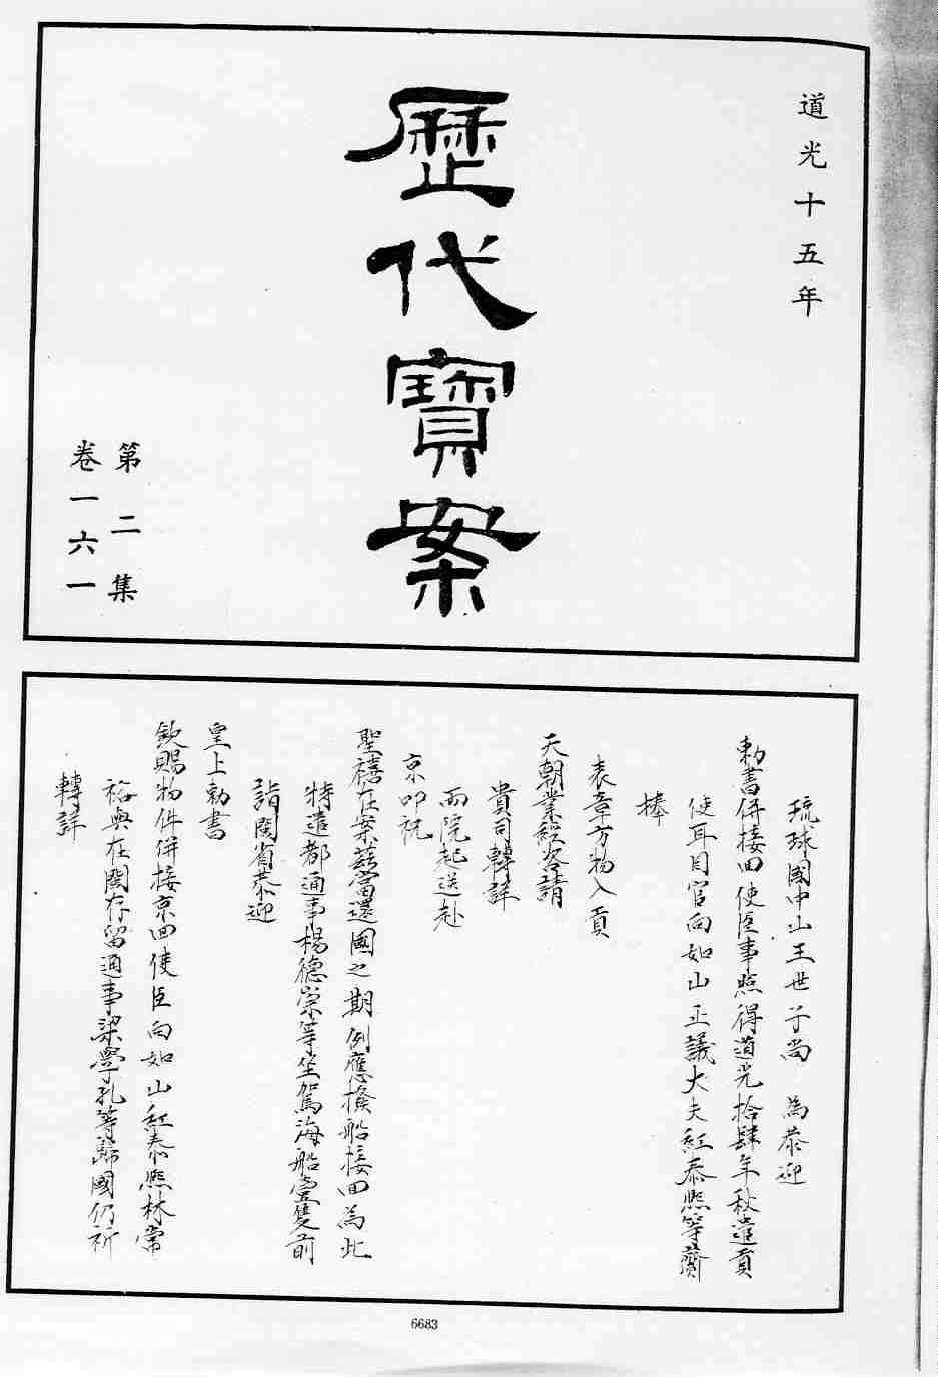 道光十五年
歷代寶案
第二集
卷一六一
琉球國中山王世子尚　為恭迎
勅書併接回使臣事照得道光拾肆年秋遣貢
使耳目官向如山正議大夫紅泰熙等齎
捧
表章方物入貢
天朝業經咨請
貴司轉詳
兩院起送赴
京叩祝
聖禧在案茲當還國之期例應撥船接回為此
特遣都通事楊德崇等坐駕海船壹隻前
詣閩省恭迎
皇上勅書
欽賜物件併接京回使臣向如山紅泰熙林常
裕與在閩存留通事梁學孔等歸國仍祈
轉詳
6683